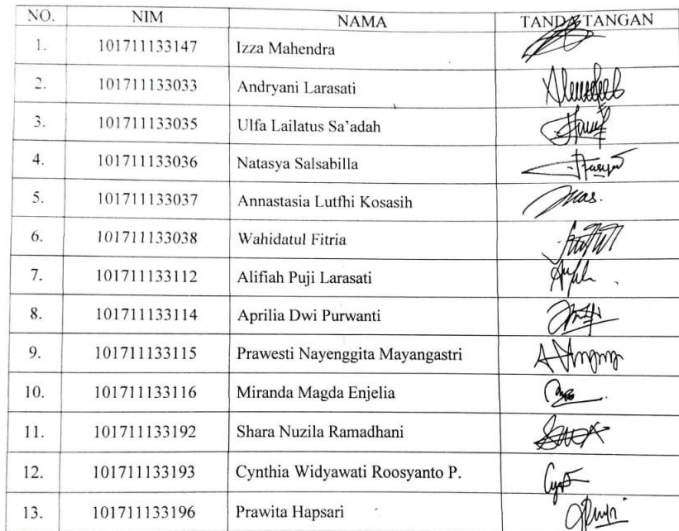 NO. NIM NAMA TANDA TANGAN
1. 101711133147 Izza Mahendra
2. 101711133033 Andryani Larasati
3. 101711133035 Ulfa Lailatus Sa'adah
4. 101711133036 Natasya Salsabilla
5. 101711133037 Annastasia Lutfhi Kosasih
6. 101711133038 Wahidatul Fitria
7. 101711133112 Alifiah Puji Larasati
8. 101711133114 Aprilia Dwi Purwanti
9. 101711133115 Prawesti Nayenggita Mayangastri
10. 101711133116 Miranda Magda Enjelia
11. 101711133192 Shara Nuzila Ramadhani
12. 101711133193 Cynthia Widyawati Roosyanto P.
13. 101711133196 Prawita Hapsari